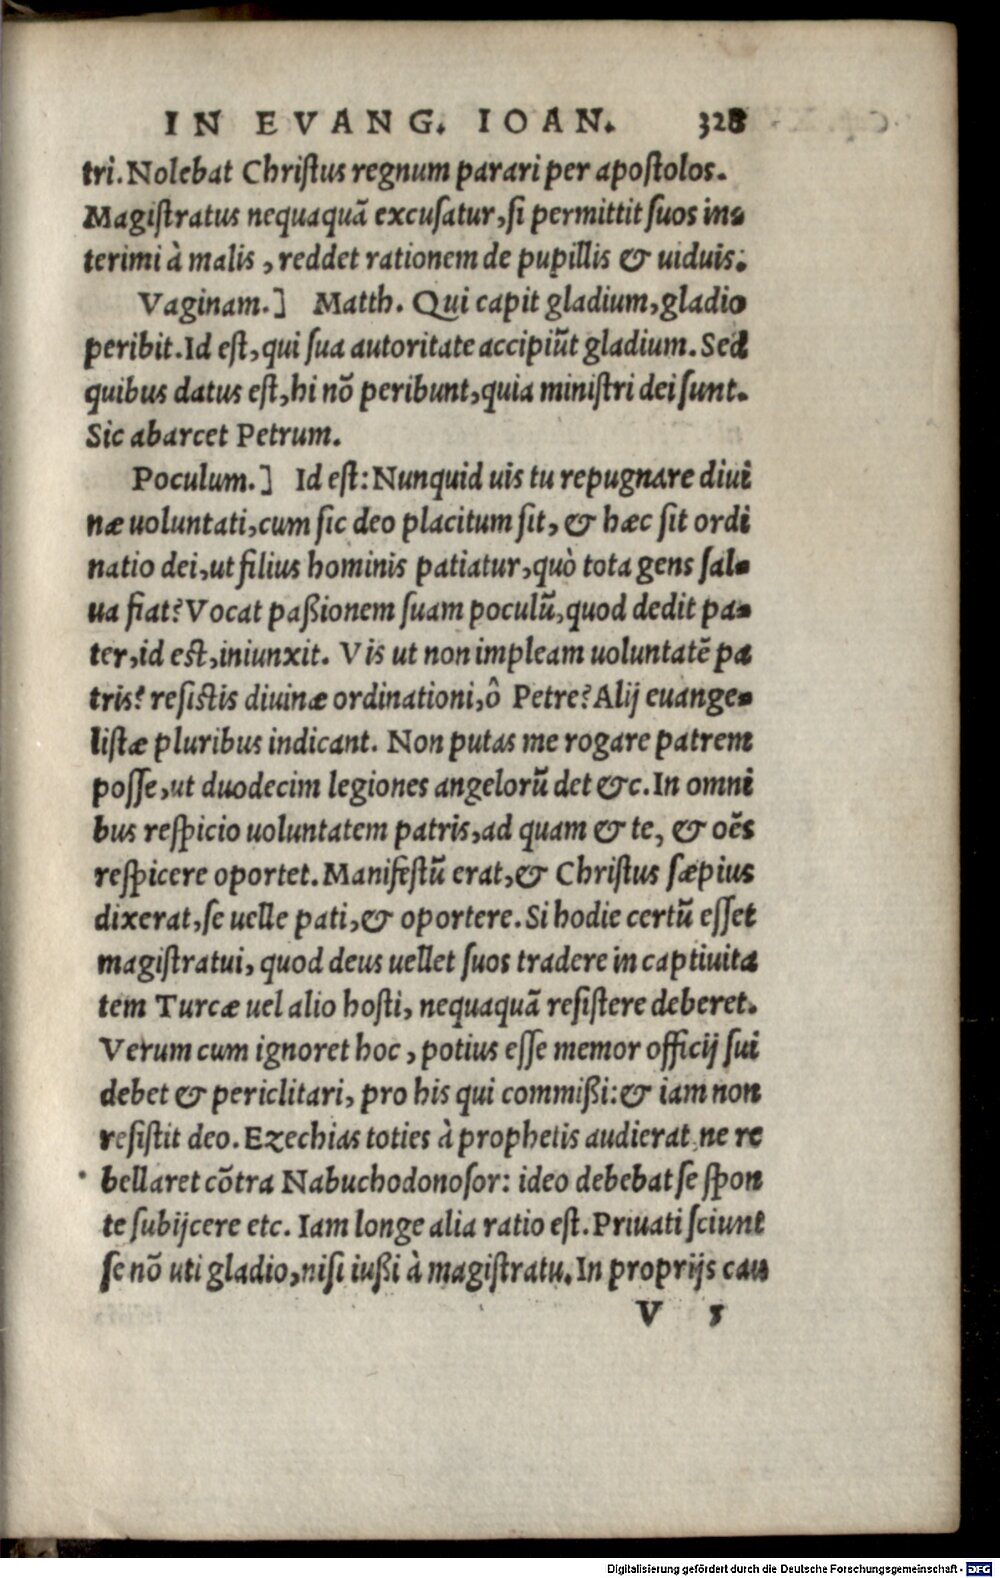 IN EVANG. IOAN. 328
tri. Nolebat Christus regnum parari per apostolos.
Magistratus nequaquā excusatur, si permittit suos in-
terimi à malis, reddet rationem de pupillis & uiduis.
Vaginam.] Matth. Qui capit gladium, gladio
peribit. Id est, qui sua autoritate accipiūt gladium. Sed
quibus datus est, hi nō peribunt, quia ministri dei sunt.
Sic abarcet Petrum.
Poculum.] Id est: Nunquid uis tu repugnare diui
næ uoluntati, cum sic deo placitum sit, & hæc sit ordi
natio dei, ut filius hominis patiatur, quò tota gens sal-
ua fiat? Vocat paßionem suam poculū, quod dedit pa-
ter, id est, iniunxit. Vis ut non impleam uoluntatē pa
tris? resistis diuinæ ordinationi, ô Petre? Alij euange-
listæ pluribus indicant. Non putas me rogare patrem
posse, ut duodecim legiones angelorū det &c. In omni
bus respicio uoluntatem patris, ad quam & te, & oēs
respicere oportet. Manifestū erat, & Christus sæpius
dixerat, se uelle pati, & oportere. Si hodie certū esset
magistratui, quod deus uellet suos tradere in captiuita
tem Turcæ uel alio hosti, nequaquā resistere deberet.
Verum cum ignoret hoc, potius esse memor officij sui
debet & periclitari, pro his qui commißi: & iam non
resistit deo. Ezechias toties à prophetis audierat ne re
bellaret cōtra Nabuchodonosor: ideo debebat se spon
te subijcere etc. Iam longe alia ratio est. Priuati sciunt
se nō uti gladio, nisi iußi à magistratu. In proprijs cau
V 5
Digitalisierung gefördert durch die Deutsche Forschungsgemeinschaft - DFG